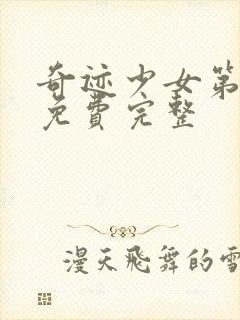 奇迹少女第
免費完整
漫天飛舞的雪